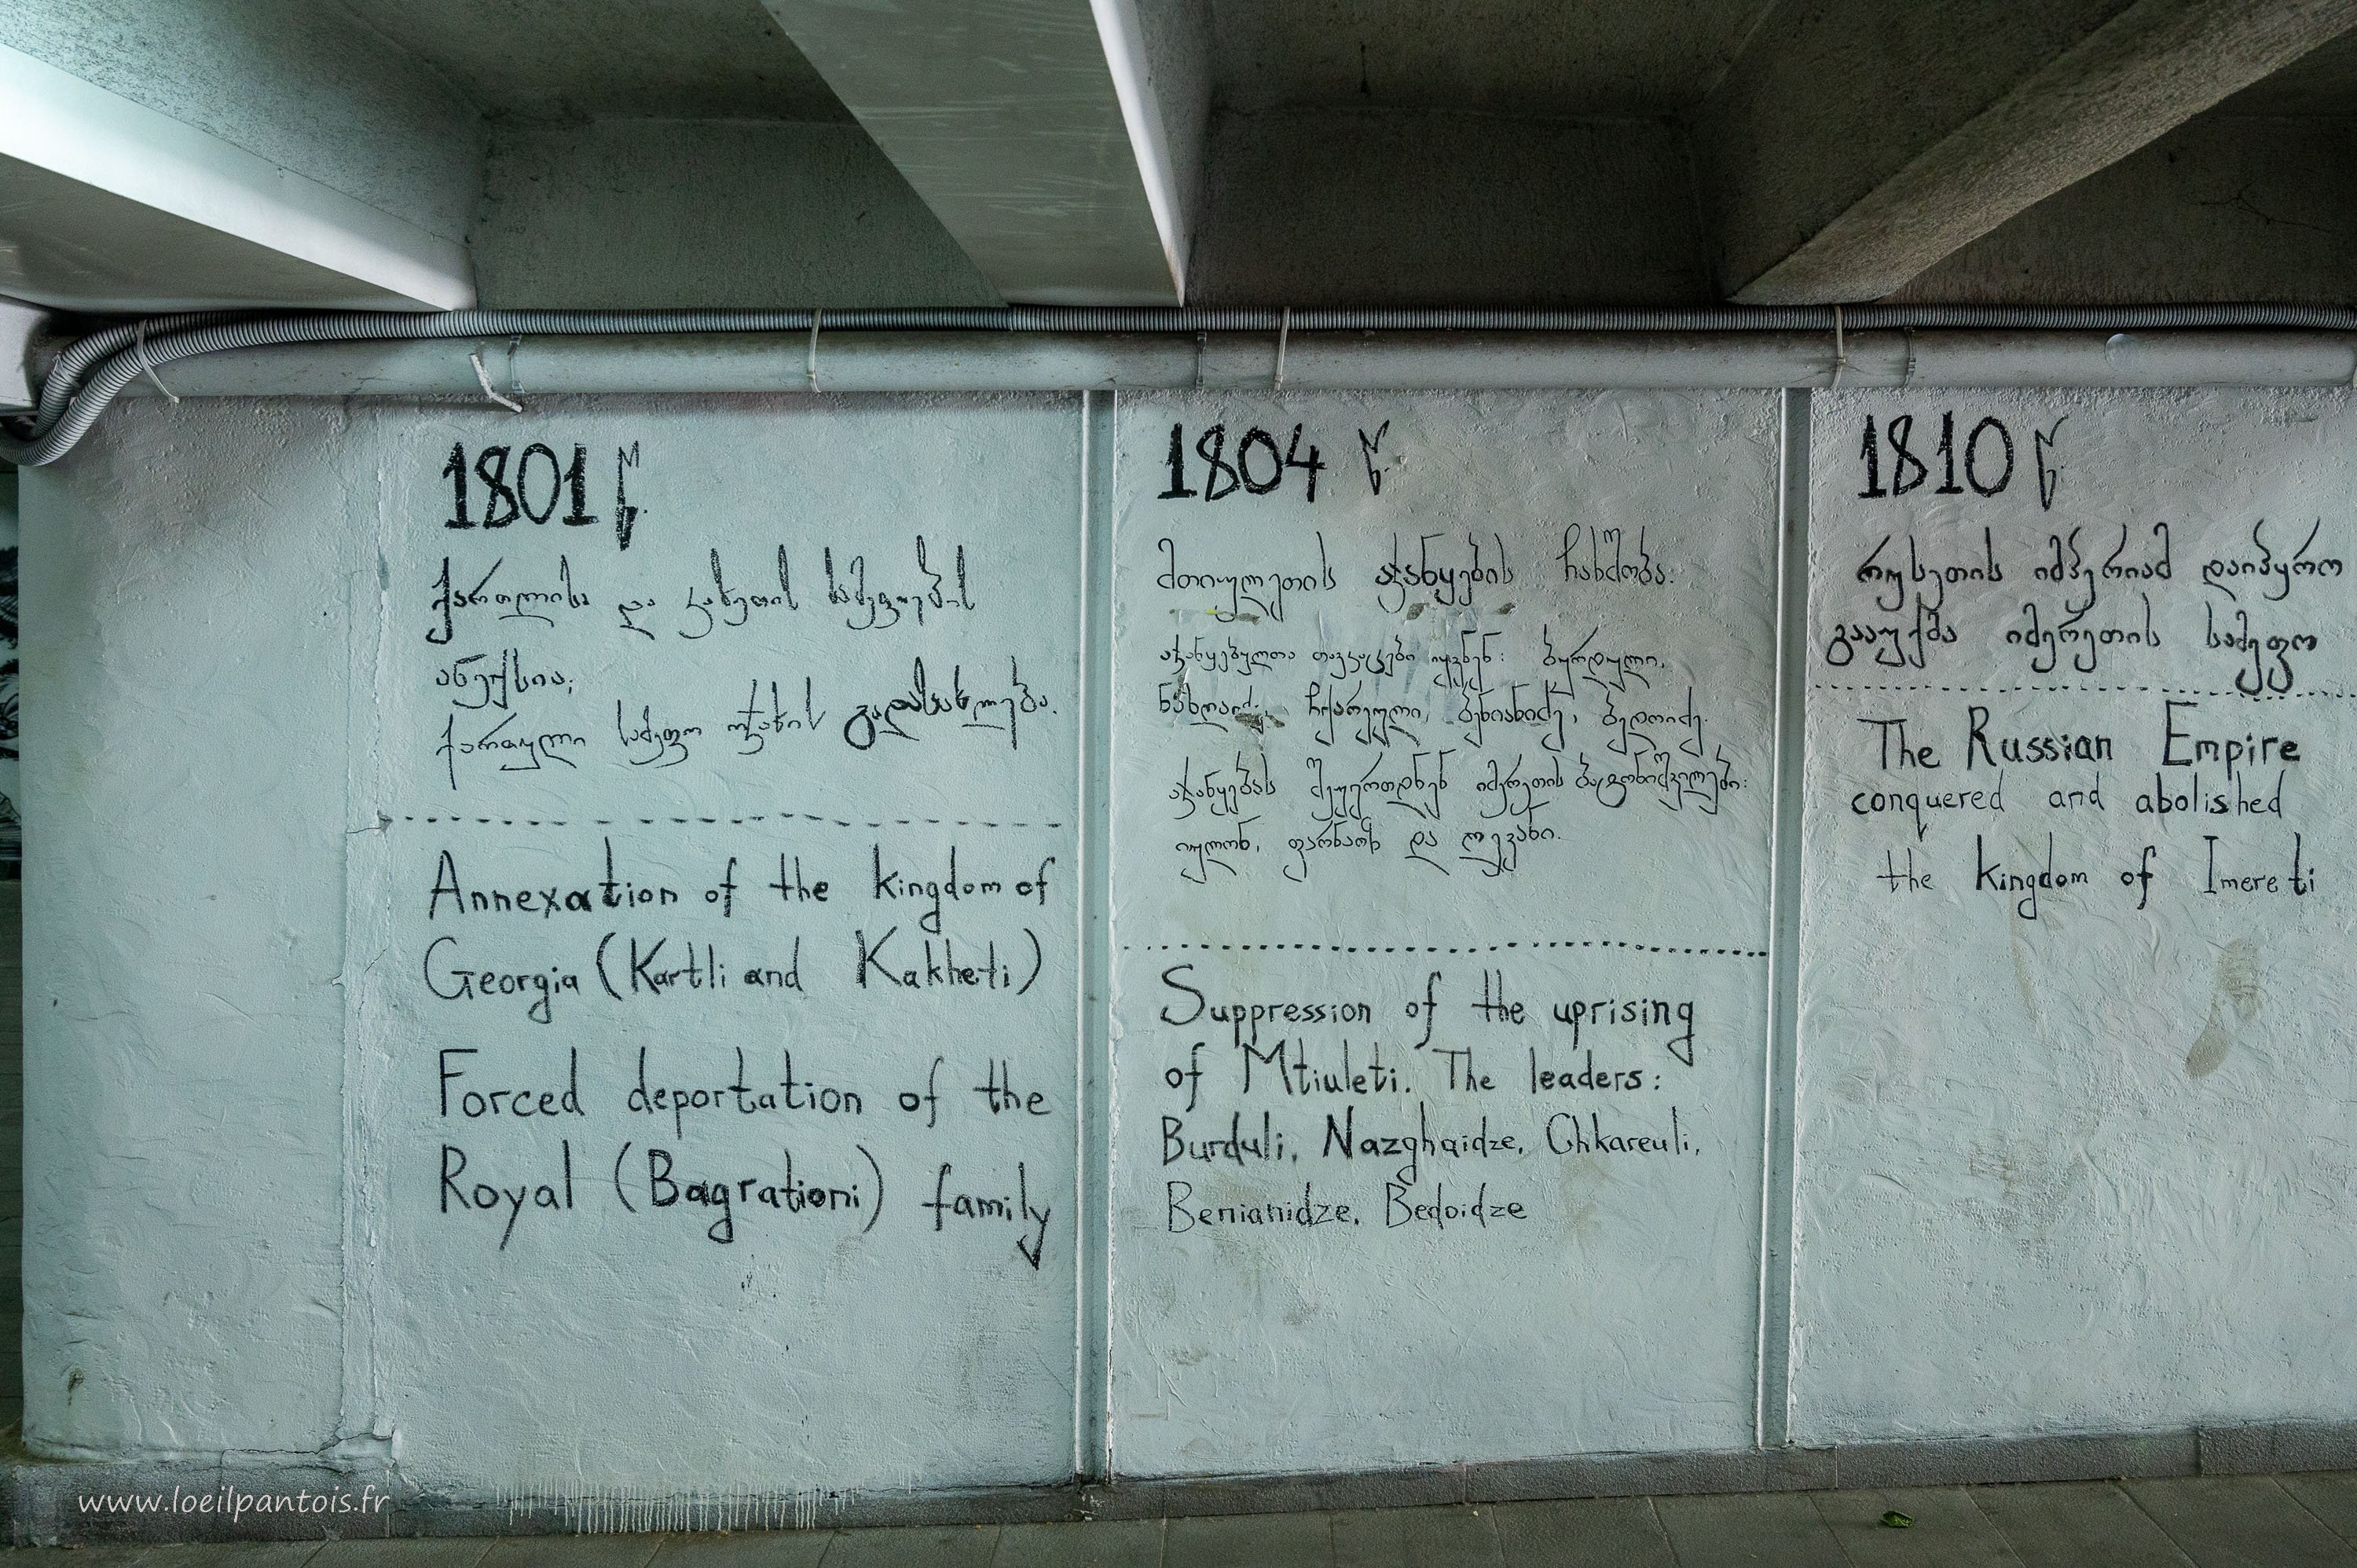 1801 წ.
ქართლისა და კახეთის სამეფოების
ანექსია;
ქართული სამეფო ოჯახის გადასახლება.
Annexation of the kingdom of
Georgia (Kartli and Kakheti)
Forced deportation of the
Royal (Bagrationi) family
1804 წ.
მთიულეთის აჯანყების ჩახშობა.
აჯანყებულთა თავკაცები იყვნენ: ბურდული,
ნაზღაიძე, ჩქარეული, ბენიანიძე, ბედოიძე.
აჯანყებას შეუერთდნენ იმერეთის ბატონიშვილები:
იულონ, ფარნაოზ და ლევანი.
Suppression of the uprising
of Mtiuleti. The leaders:
Burduli, Nazghaidze, Chkareuli,
Benianidze, Bedoidze
1810 წ.
რუსეთის იმპერიამ დაიპყრო
გააუქმა იმერეთის სამეფო
The Russian Empire
conquered and abolished
the kingdom of Imereti
www.loeilpantois.fr